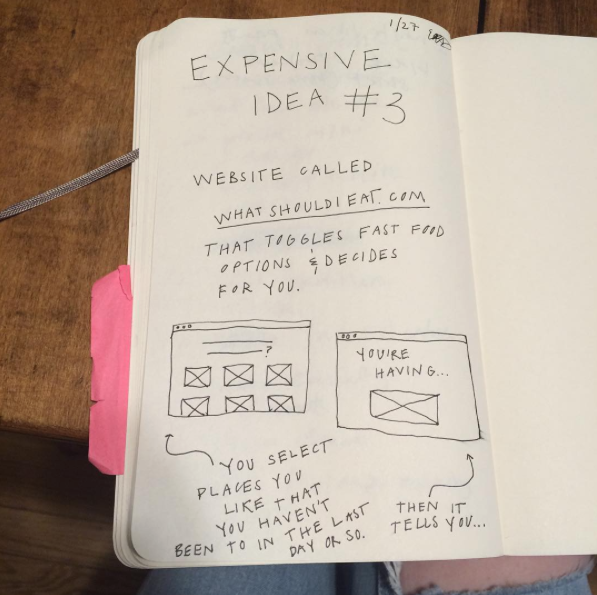 1/27
EXPENSIVE
IDEA #3
WEBSITE CALLED
WHATSHOULDIEAT.COM
THAT TOGGLES FAST FOOD
OPTIONS & DECIDES
FOR YOU.
?
YOU'RE
HAVING...
YOU SELECT
PLACES YOU
LIKE THAT
YOU HAVEN'T
BEEN TO IN THE LAST
DAY OR SO.
THEN IT
TELLS YOU...